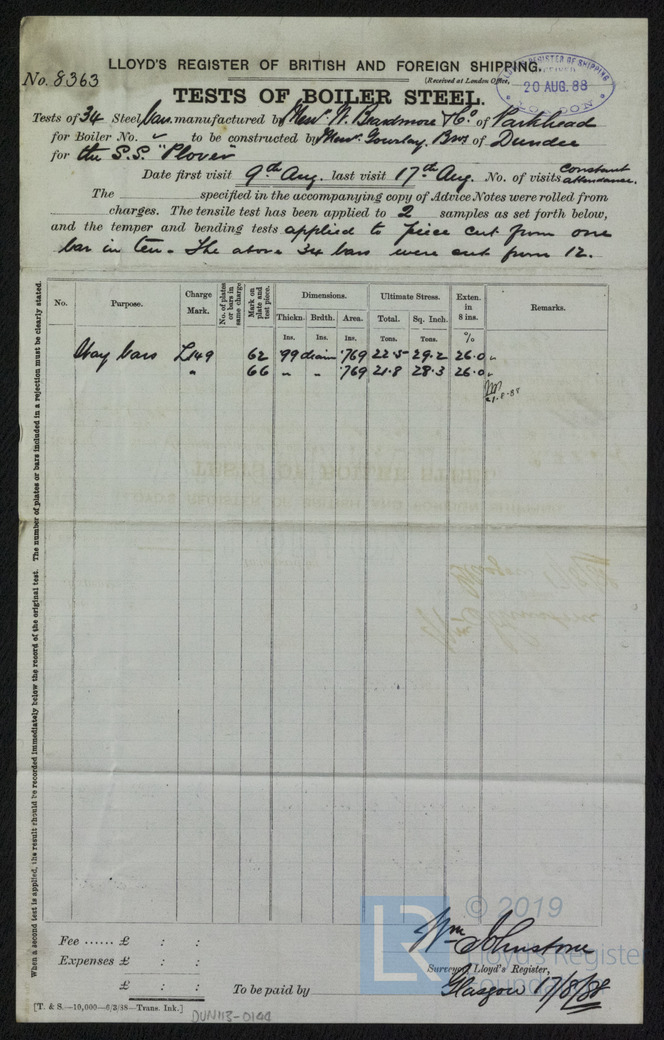 LLOYD'S REGISTER OF BRITISH AND FOREIGN SHIPPING.
No. 8363
(Received at London Office,
LLOYD'S REGISTER OF SHIPPING
RECEIVED
20 AUG. 88
LONDON
TESTS OF BOILER STEEL.
Tests of 34 Steel bars manufactured by Messrs. W. Beardmore & Co. of Parkhead
for Boiler No. ✓ to be constructed by Messrs. Gourlay, Bros of Dundee
for the S.S. "Plover"
Date first visit 9th Aug. last visit 17th Aug. No. of visits Constant attendance.
The specified in the accompanying copy of Advice Notes were rolled from
charges. The tensile test has been applied to 2 samples as set forth below,
and the temper and bending tests applied to piece cut from one
bar in ten. The above 34 bars were cut from 12.
When a second test is applied, the result should be recorded immediately below the record of the original test. The number of plates or bars included in a rejection must be clearly stated.
No. Purpose. Charge Mark. No. of plates or bars in same charge Mark on plate and test piece. Dimensions. Ultimate Stress. Exten. in 8 ins. Remarks.
Thickn. Brdth. Area. Total. Sq. Inch.
Ins. Ins. Ins. Tons. Tons. %
Stay bars L149 62 99 diam .769 22.5 29.2 26.0 "
" 66 " " .769 21.8 28.3 26.0 "
21.8.88
© 2019
LR
Lloyd's Register
Foundation
Wm Johnstone
Surveyor Lloyd's Register,
Glasgow 17/8/88
Fee ...... £ : :
Expenses £ : :
£ : :
To be paid by
[T. & S.—10,000—6/3/88—Trans. Ink.]
DUN113-0144